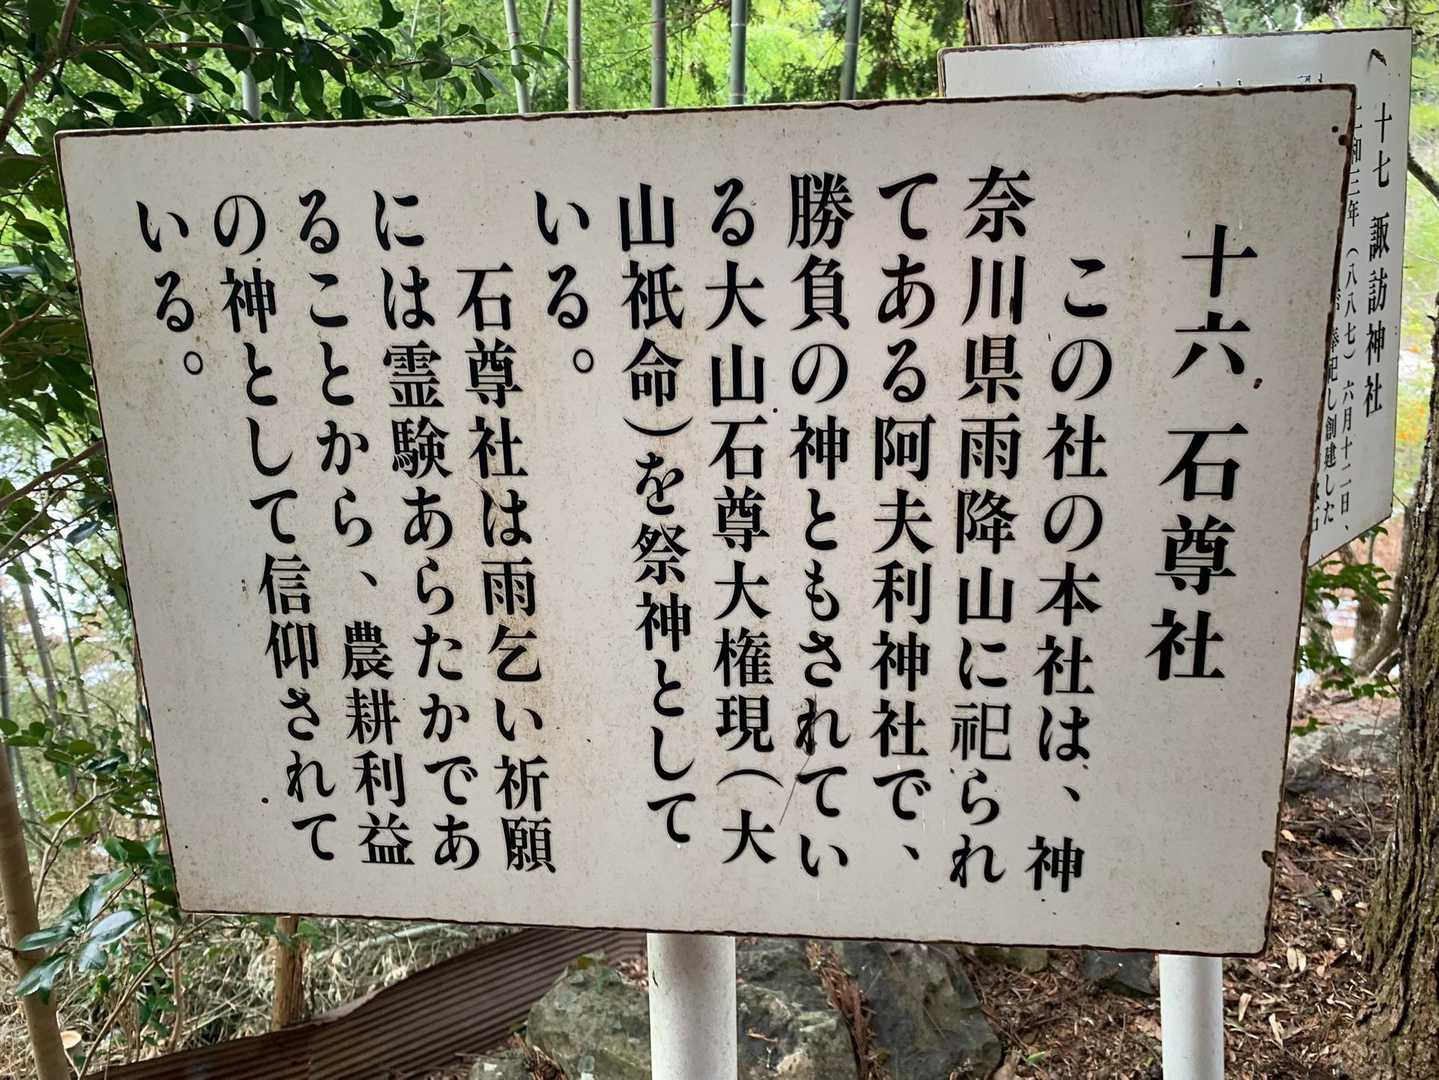 十六 石尊社
この社の本社は、神
奈川県雨降山に祀られ
てある阿夫利神社で、
勝負の神ともされてい
る大山石尊大権現(大
山祇命)を祭神として
いる。
石尊社は雨乞い祈願
には霊験あらたかであ
ることから、農耕利益
の神として信仰されて
いる。
十七 諏訪神社
仁和三年(八八七)六月十二日、
奉祀し創建した